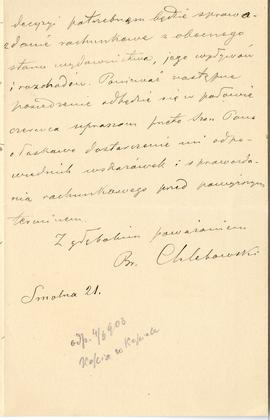 decyzyi potrzebnem będzie sprawo-
zdanie rachunkowe z obecnego
stanu wydawnictwa, jego wpływów
i rozchodów. Ponieważ następne
posiedzenie odbędzie się w połowie
czerwca upraszam przeto Szan. Pana
o łaskawe dostarczenie mi odpo-
wiednich wskazówek i sprawozda-
nia rachunkowego przed powyższym
terminem.
Z głębokiem poważaniem
Br. Chlebowski
Smolna 21.
odp. 4/6 903